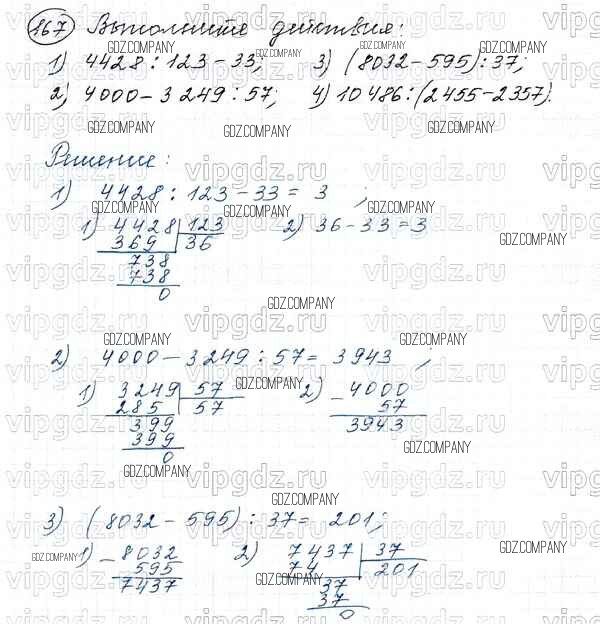 167 Выполните действия:
1) 4428 : 123 - 33; 3) (8032 - 595) : 37;
2) 4000 - 3249 : 57; 4) 10486 : (2455 - 2357).
Решение:
1) 4428 : 123 - 33 = 3 ;
1) 4428 | 123 2) 36 - 33 = 3
369 | 36
738
738
0
2) 4000 - 3249 : 57 = 3943 ;
1) 3249 | 57 2) - 4000
285 | 57 57
399 3943
399
0
3) (8032 - 595) : 37 = 201;
1) - 8032 2) 7437 | 37
595 74 | 201
7437 37
37
0
vipgdz.ru
GDZ.COMPANY